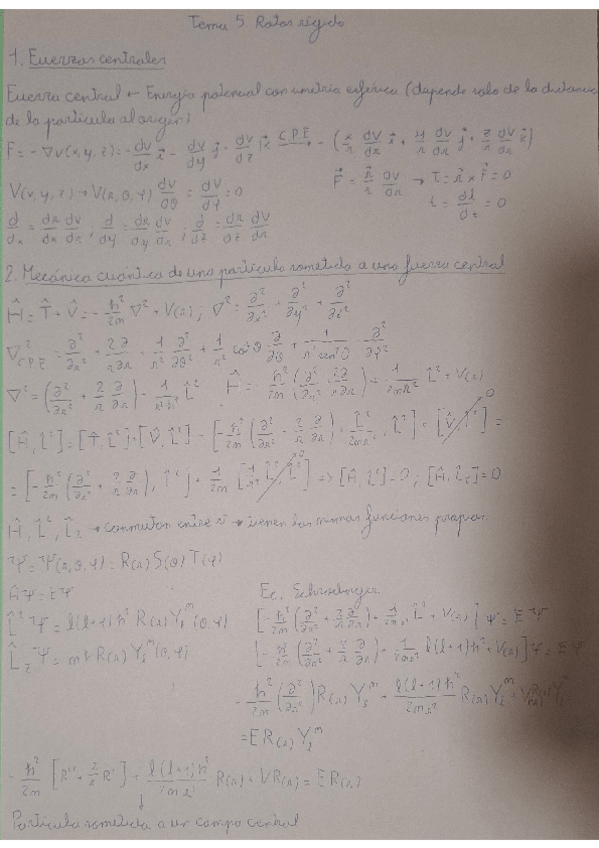 Tema 5. Rotor rígido
1. Fuerzas centrales
Fuerza central ← Energía potencial con simetría esférica (depende solo de la distancia
de la partícula al origen)
F = -∇V(x,y,z) = -dV/dx i - dV/dy j - dV/dz k C.P.E. → -(x/r dV/dr i + y/r dV/dr j + z/r dV/dr k)
V(x,y,z) → V(r,θ,φ) dV/dθ = dV/dφ = 0
F = r/r dV/dr → τ = r x F = 0
τ = dl/dt = 0
d/dx = dr/dx dV/dr ; d/dy = dr/dy dV/dr ; d/dz = dr/dz dV/dr
2. Mecánica cuántica de una partícula sometida a una fuerza central
Ĥ = T̂ + V̂ = -ħ²/2m ∇² + V(r); ∇² = ∂²/∂x² + ∂²/∂y² + ∂²/∂z²
∇²C.P.E. = ∂²/∂r² + 2/r ∂/∂r + 1/r² ∂²/∂θ² + 1/r² cot θ ∂/∂θ + 1/r² sen²θ ∂²/∂φ²
∇² = (∂²/∂r² + 2/r ∂/∂r) - 1/r²ħ² L̂² Ĥ = -ħ²/2m (∂²/∂r² + 2/r ∂/∂r) + 1/2mr² L̂² + V(r)
[Ĥ, L̂²] = [T̂, L̂²] + [V̂, L̂²] = [-ħ²/2m (∂²/∂r² + 2/r ∂/∂r) + L̂²/2mr², L̂²] + [V̂, L̂²] → 0 =
= [-ħ²/2m (∂²/∂r² + 2/r ∂/∂r), L̂²] + 1/2m [1/r² L̂², L̂²] → 0 => [Ĥ, L̂²] = 0 ; [Ĥ, L̂z] = 0
Ĥ, L̂², L̂z → conmutan entre sí → tienen las mismas funciones propias
Ψ = Ψ(r,θ,φ) = R(r) S(θ) T(φ)
ĤΨ = EΨ
L̂²Ψ = l(l+1)ħ² R(r) Yₗᵐ(θ,φ)
L̂zΨ = mħ R(r) Yₗᵐ(θ,φ)
Ec. Schrodinger
[-ħ²/2m (∂²/∂r² + 2/r ∂/∂r) + 1/2mr² L̂² + V(r)] Ψ = EΨ
[-ħ²/2m (∂²/∂r² + 2/r ∂/∂r) + 1/2mr² l(l+1)ħ² + V(r)] Ψ = EΨ
-ħ²/2m (∂²/∂r²) R(r) Yₗᵐ + l(l+1)ħ²/2mr² R(r) Yₗᵐ + V(r) R(r) Yₗᵐ
= E R(r) Yₗᵐ
-ħ²/2m [R'' + 2/r R'] + l(l+1)ħ²/2mr² R(r) + V R(r) = E R(r)
↓
Partícula sometida a un campo central